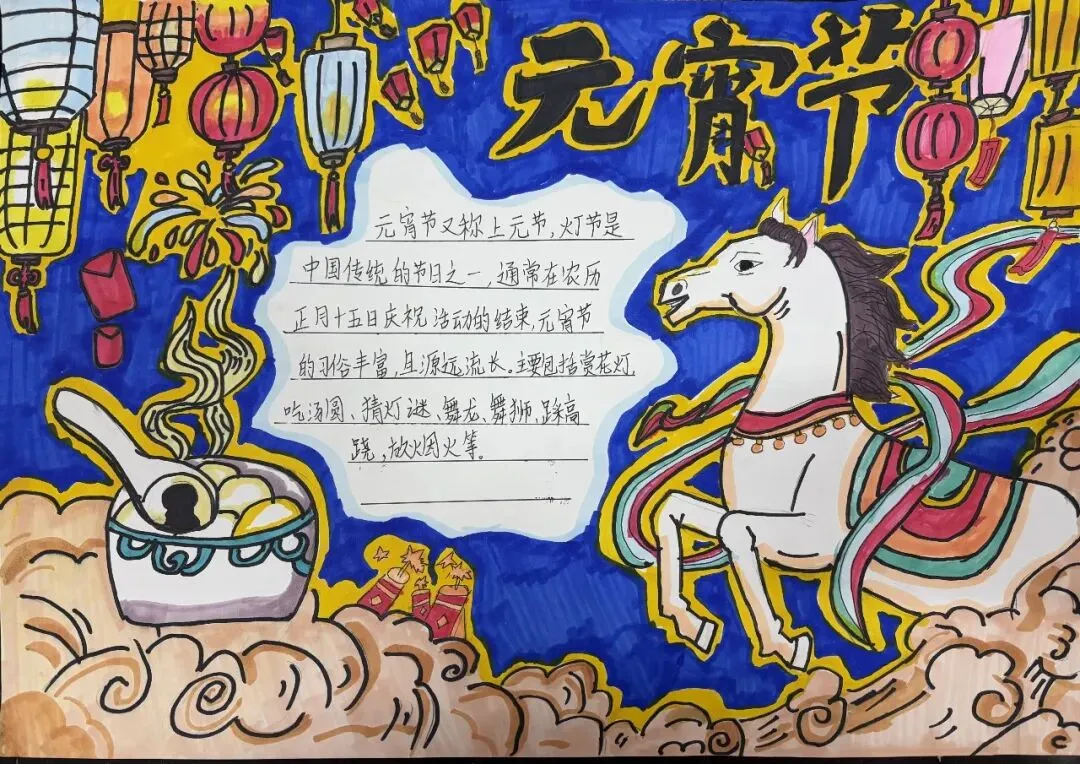 元宵节
元宵节又称上元节,灯节是
中国传统的节日之一,通常在农历
正月十五日庆祝活动的结束,元宵节
的习俗丰富,且源远流长。主要包括赏花灯
吃汤圆、猜灯谜、舞龙、舞狮、踩高
跷,放烟火等。